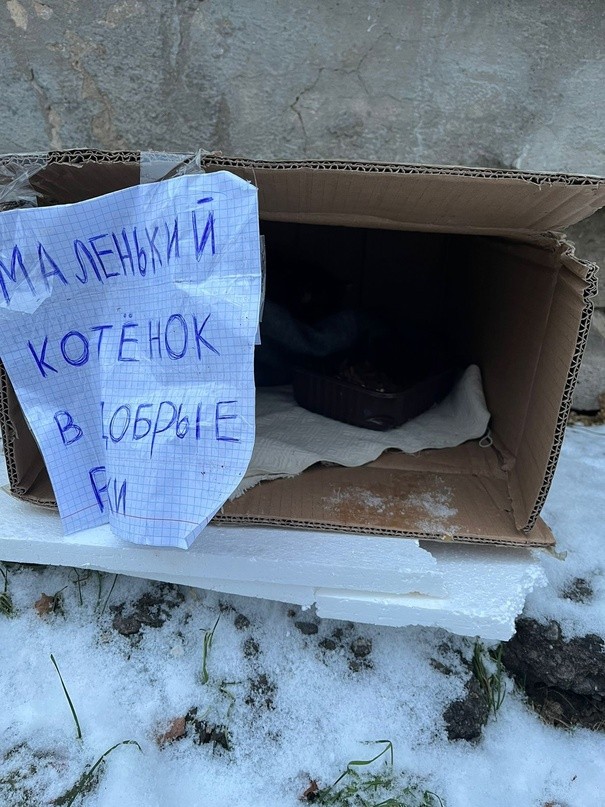 МАЛЕНЬКИЙ
КОТЁНОК
В ДОБРЫЕ
РУКИ